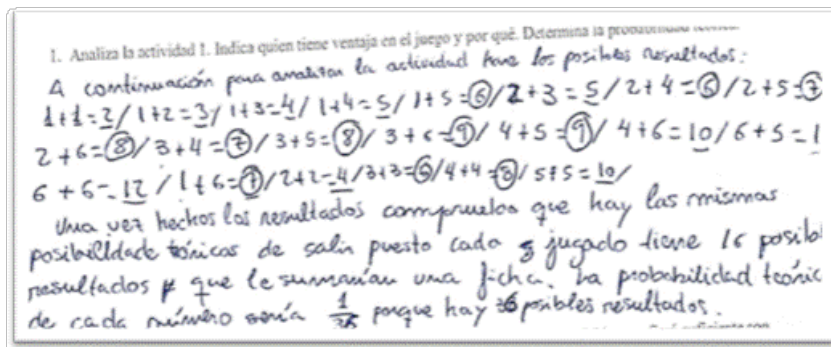 1. Analiza la actividad 1. Indica quien tiene ventaja en el juego y por qué. Determina la probabilidad
A continuación para analizar la actividad haré los posibles resultados:
1+1=2/ 1+2=3/ 1+3=4/ 1+4=5/ 1+5=6/ 2+3=5/ 2+4=6/ 2+5=7
2+6=8/ 3+4=7/ 3+5=8/ 3+6=9/ 4+5=9/ 4+6=10/ 6+5=1
6+6=12/ 1+6=7/ 2+2=4/ 3+3=6/ 4+4=8/ 5+5=10/
Una vez hechos los resultados compruebo que hay las mismas
posibilidade de salir puesto cada jugado tiene posibl
resultados que le sumarían una ficha. La probabilidad teóric
de cada número sería 1/36 porque hay 36 posibles resultados.